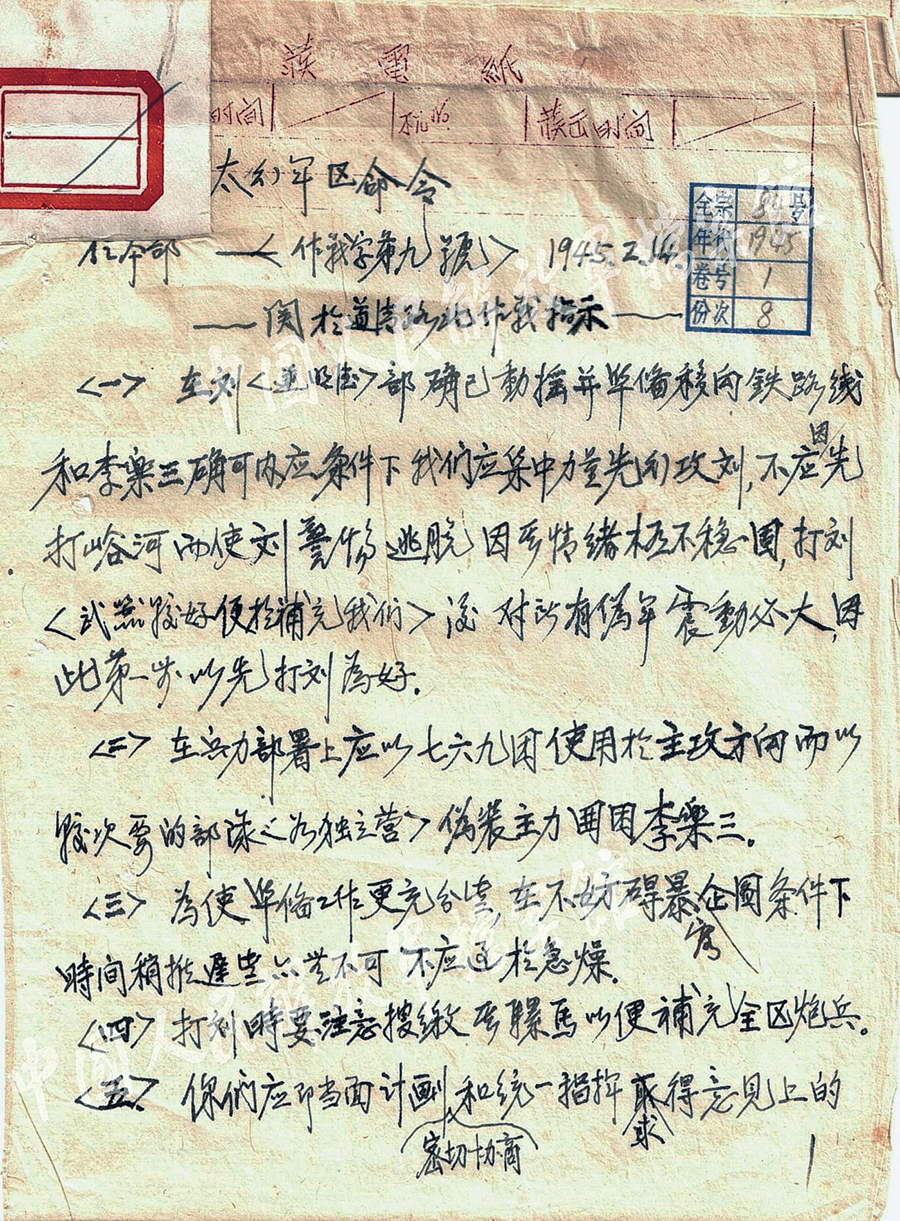 譯電紙
时间 机号 譯出时间
太行军区命令
全宗 84 号
年代 1945
卷号 1
份次 8
<作戰字第九號> 1945.2.14.
——関於道清路北作戰指示——
<一> 在刘<逆明德>部确已動搖并準備移向鉄路线
和李樂三确可内应条件下我们应集中力量先行攻刘，不应因先
打峪河而使刘警惕逃脱因委情绪极不稳固，打刘
<武器較好便於補充我们>後对所有偽军震動必大，因
此第一步以先打刘為好.
<二> 在兵力部署上应以七六九团使用於主攻方向而以
較次要的部隊<如独立营>偽装主力囲困李樂三.
<三> 為使準備工作更充分些，在不妨碍暴露企圖条件下
時间稍推遲些亦無不可不应过於急燥.
<四> 打刘時要注意搜繳委騾馬以便補充全区炮兵.
<五> 你們应即当面密切协商計劃和统一指挥求取得意見上的
1
中国人民解放军档案馆